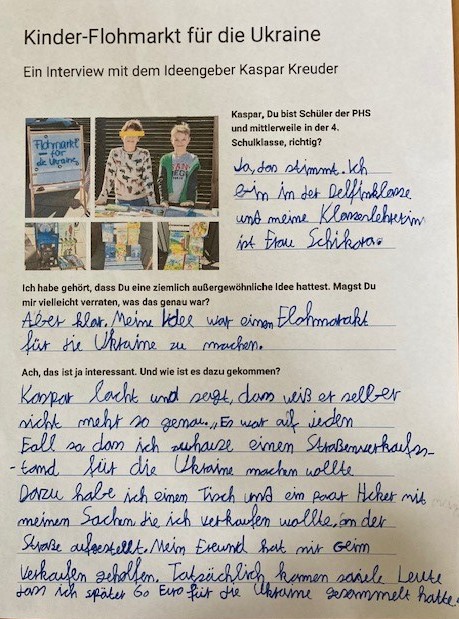 Kinder-Flohmarkt für die Ukraine
Ein Interview mit dem Ideengeber Kaspar Kreuder
Flohmarkt
für
die Ukraine
Kaspar, Du bist Schüler der PHS
und mittlerweile in der 4.
Schulklasse, richtig?
Ja, das stimmt. Ich
bin in der Delfinklasse
und meine Klassenlehrerin
ist Frau Schikora.
Ich habe gehört, dass Du eine ziemlich außergewöhnliche Idee hattest. Magst Du
mir vielleicht verraten, was das genau war?
Aber klar. Meine Idee war einen Flohmarkt
für die Ukraine zu machen.
Ach, das ist ja interessant. Und wie ist es dazu gekommen?
Kaspar lacht und sagt, dass weiß er selber
nicht mehr so genau. „Es war auf jeden
Fall so dass ich zuhause einen Straßenverkaufs-
-tand für die Ukraine machen wollte
Dazu habe ich einen Tisch und ein paar Hcker mit
meinen Sachen, die ich verkaufen wollte, an der
Straße aufgestellt. Mein Freund hat mir beim
Verkaufen geholfen. Tatsächlich kamen soviele Leute
dass ich später 60 Euro für die Ukraine gesammelt hatte."